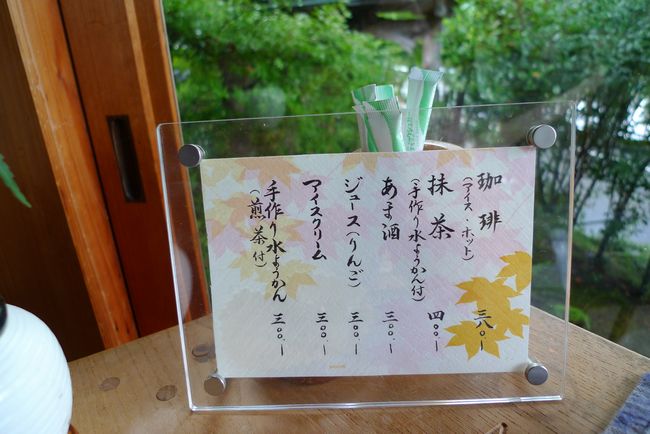 珈琲
(アイス・ホット) 三八〇.ー
抹茶
(手作り水ようかん付) 四〇〇.ー
あま酒 三〇〇.ー
ジュース(りんご) 三〇〇.ー
アイスクリーム 三〇〇.ー
手作り水ようかん 三〇〇.ー
(煎茶付)